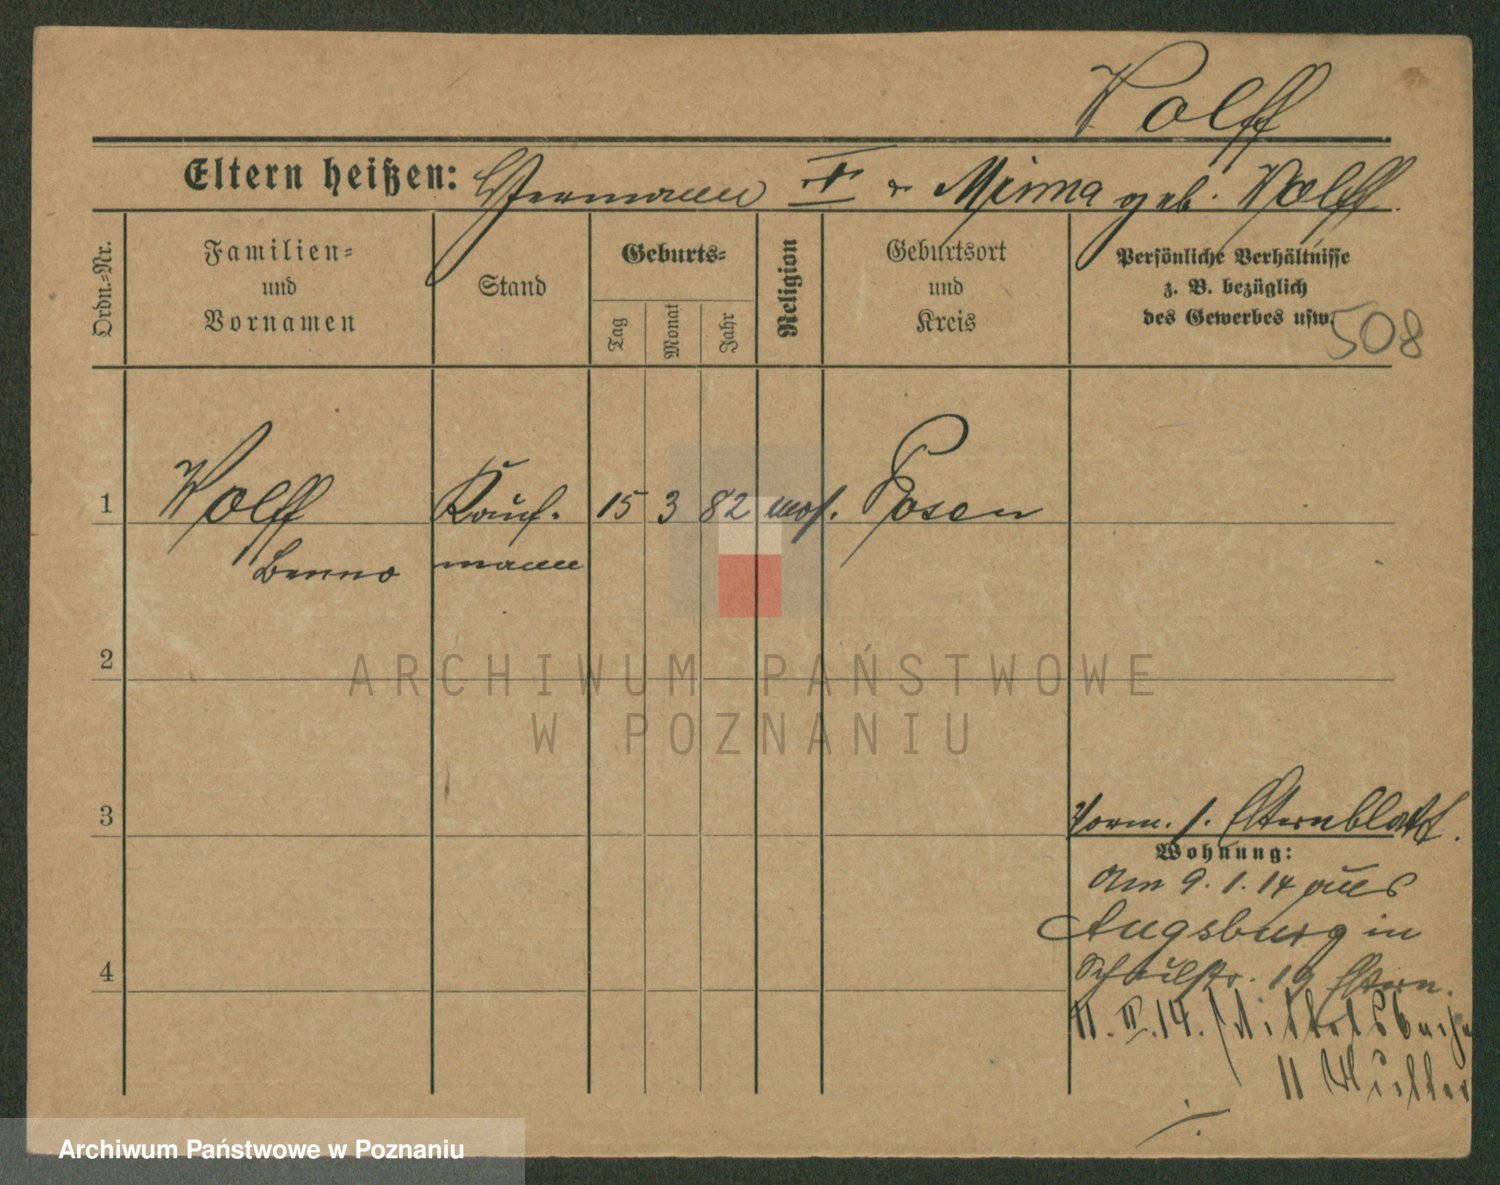 Wolff
Eltern heißen: Hermann II u Minna geb. Wolff
Ordn.=Nr.
Familien=
und
Vornamen
Stand
Geburts=
Tag
Monat
Jahr
Religion
Geburtsort
und
Kreis
Persönliche Verhältnisse
z. B. bezüglich
des Gewerbes usw.
508
1
Wolff
Benno
Kauf-
mann
15 3 82 mos. Posen
2
3
Vorm. s. Elternblatt.
Wohnung:
Am 9. 1. 14 aus
Augsburg in
Schulstr. 19 Eltern.
4
11. II. 14.
11 Mutter
ARCHIWUM PAŃSTWOWE
W POZNANIU
Archiwum Państwowe w Poznaniu